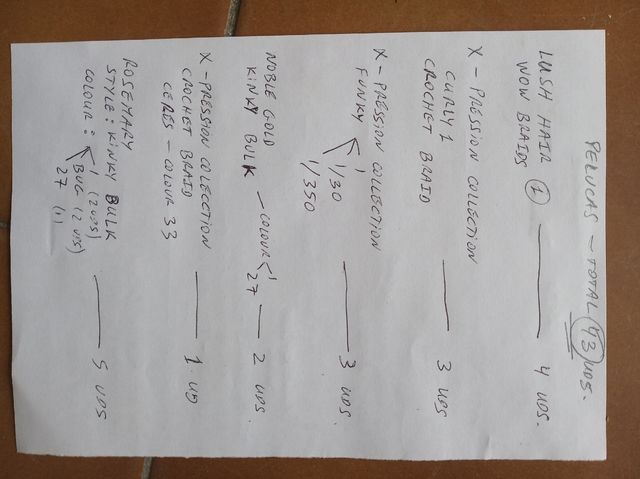 PELUCAS - TOTAL 43 UDS.
LUSH HAIR
WOW BRAIDS 1 4 UDS.
X - PRESSION COLLECTION
CURLY 1
CROCHET BRAID 3 UDS
X - PRESSION COLLECTION
FUNKY 1
1/30
1/350 3 UDS.
NOBLE GOLD
KINKY BULK - COLOUR 1
27 2 UDS.
X - PRESSION COLECTION
CROCHET BRAID
CERES - COLOUR 33 1 UD
ROSEMARY
STYLE: KINKY BULK
COLOUR: 1 (2 UDS)
BUG (2 UDS)
27 (1) 5 UDS